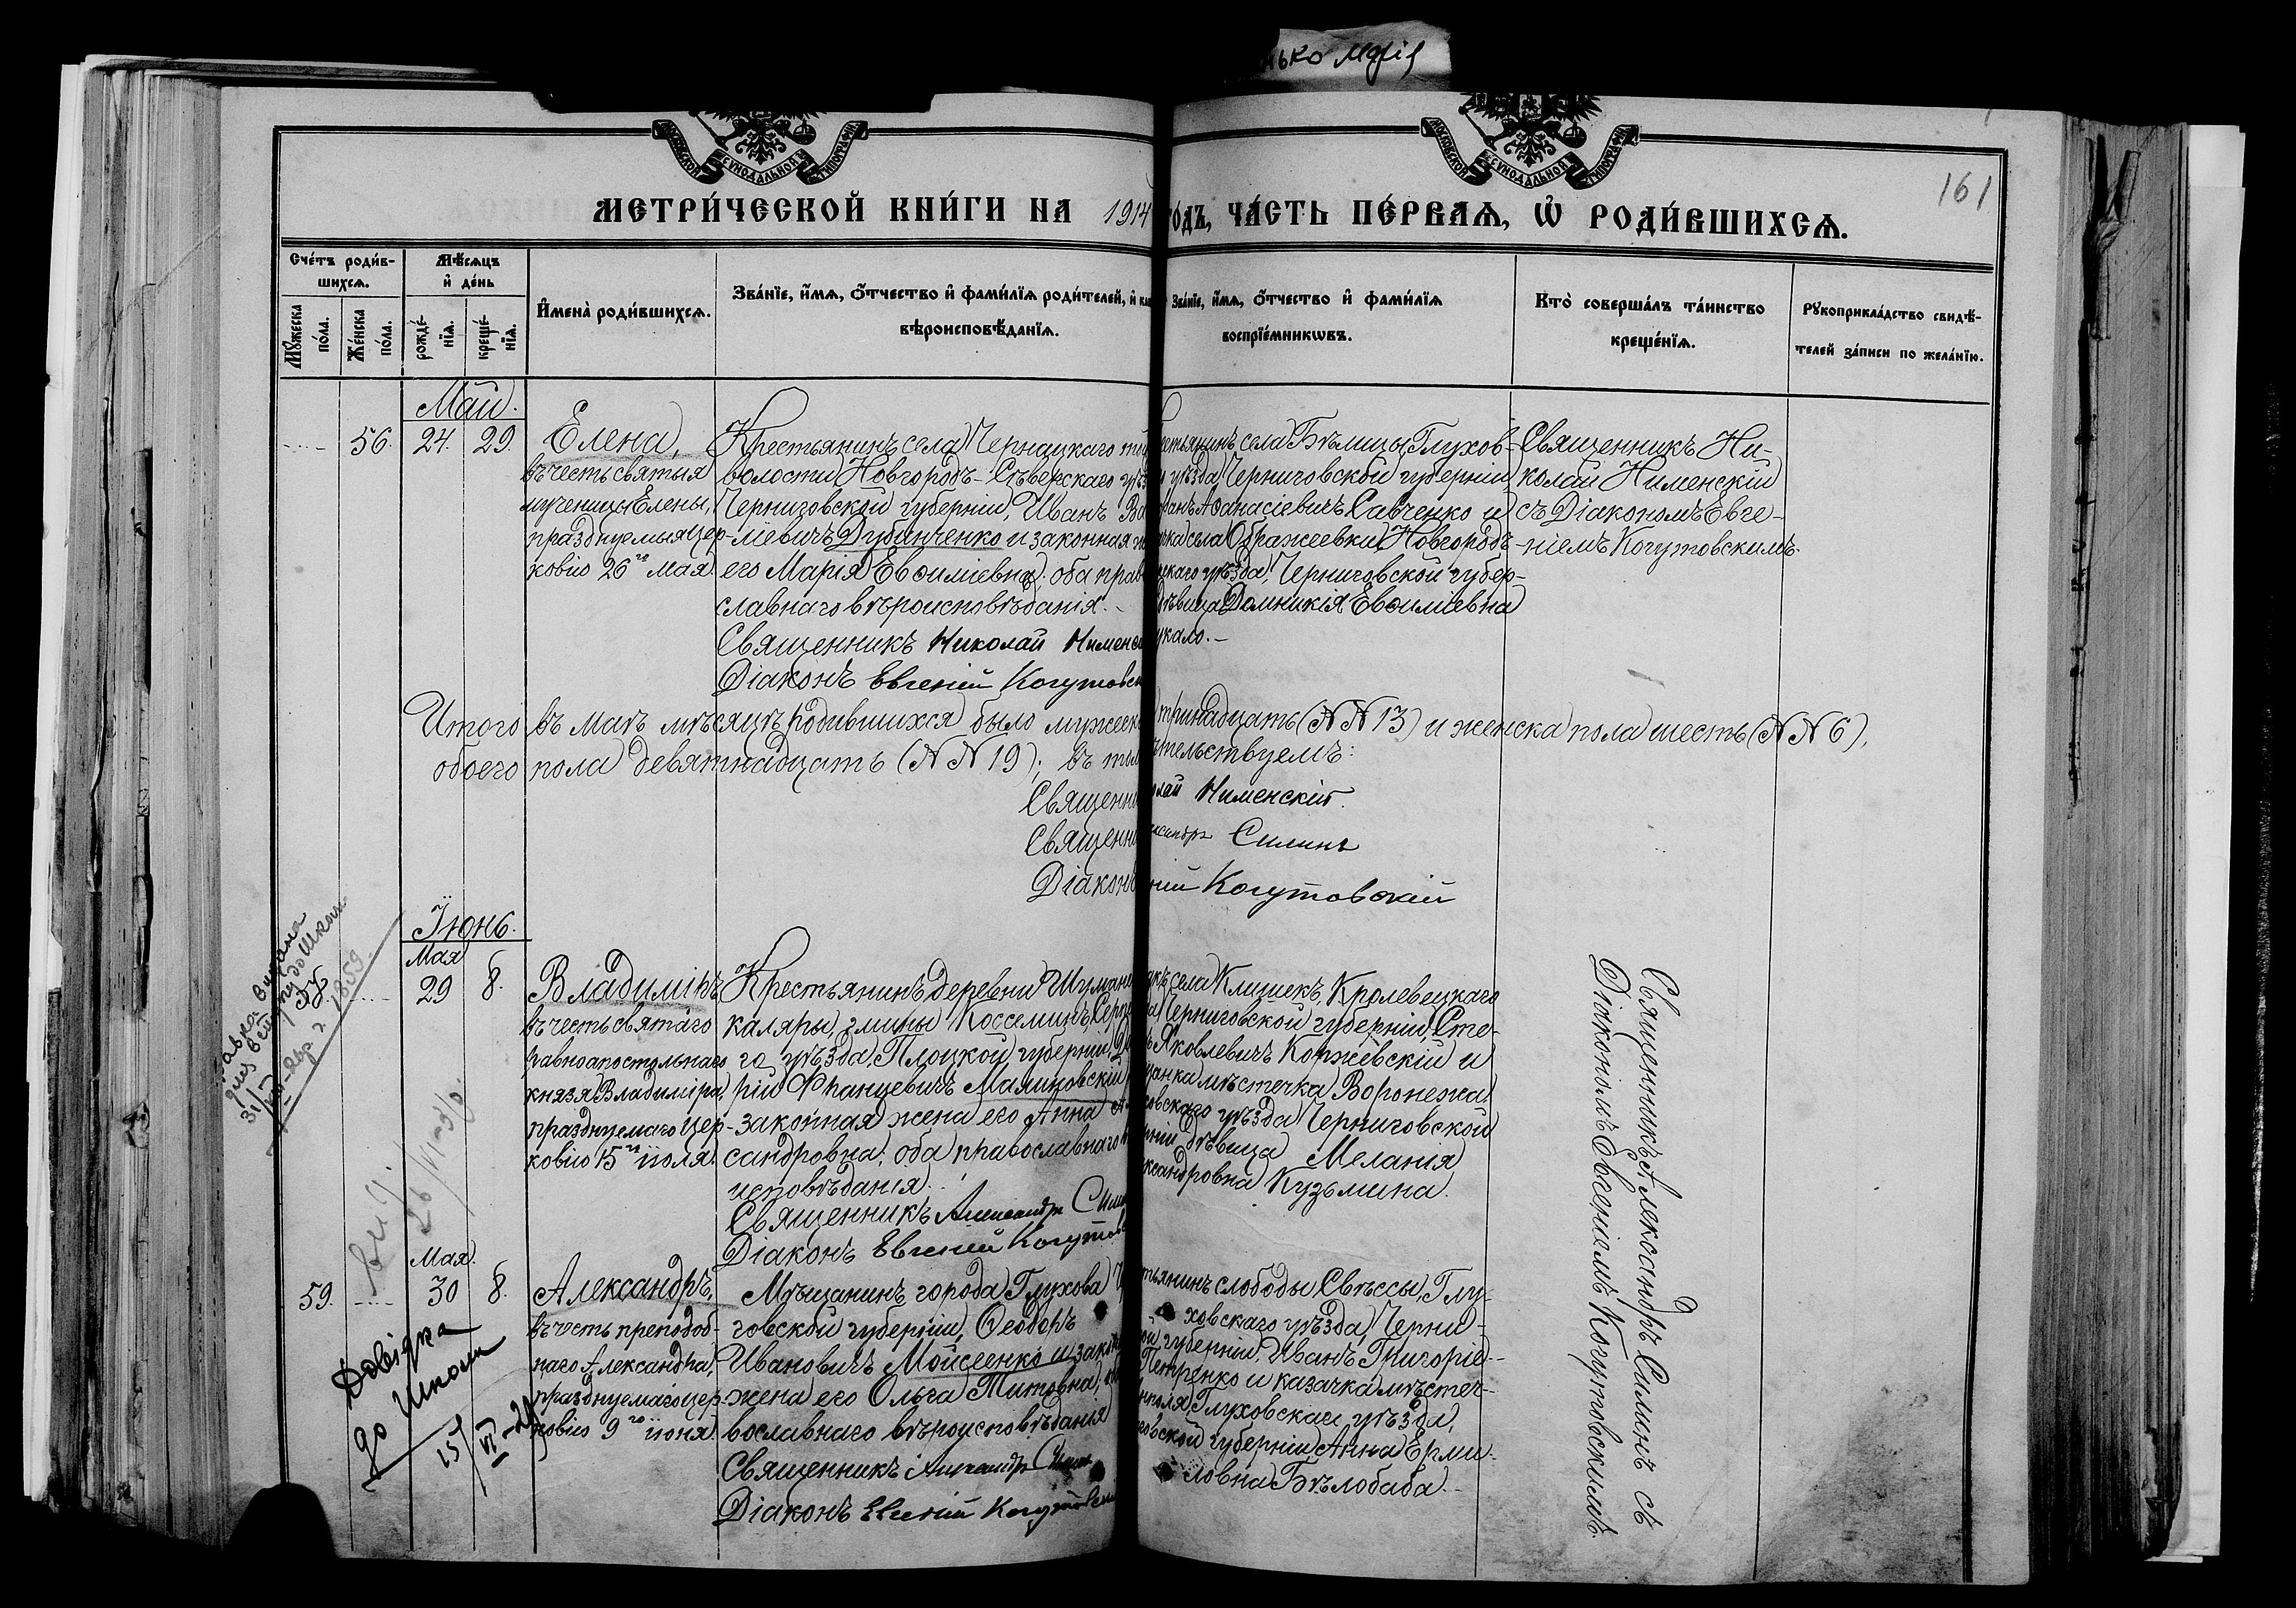 ько Марія
МОСКОВСКОЙ СѴНОДАЛЬНОЙ ТИПОГРАФІИ
МОСКОВСКОЙ СѴНОДАЛЬНОЙ ТИПОГРАФІИ
161
МЕТРИ́ЧЕСКОЙ КНИ́ГИ НА 1914 го́дъ, ЧА́СТЬ ПЕ́РВАѦ, Ѡ҆ РОДИ́ВШИХСѦ.
Сче́тъ роди́в-
шихсѧ.
Мꙋ́жеска
по́ла.
Же́нска
по́ла.
Мѣ́сѧцъ
и҆ де́нь
рожде́-
нїѧ.
креще́-
нїѧ.
И҆мена̀ роди́вшихсѧ.
Зва́нїе, и҆́мѧ, ѻ҆́тчество и҆ фами́лїѧ роди́телей, и҆
вѣроисповѣ́данїѧ.
Зва́нїе, и҆́мѧ, ѻ҆́тчество и҆ фами́лїѧ
воспрїе́мникѡвъ.
Кто̀ соверша́лъ та́инство
креще́нїѧ.
Рꙋкоприкла́дство свидѣ́-
телей за́писи по жела́нїю.
Май.
56. 24. 29.
Елена,
въ честь святыя
мученицы Елены,
празднуемыя цер-
ковію 26го мая.
Крестьянинъ села Чернацкаго той
волости, Новгородъ-Сѣверскаго уѣз
Черниговской губерніи, Иванъ Ва
ліевичъ Дубинченко и законная ж
его Марія Евѳиміевна; оба прав
славнаго вѣроисповѣданія.-
Священникъ Николай Нименс
Діаконъ Евгеній Когутовск
естьянинъ села Бѣлицы, Глухов-
уѣзда, Черниговской губерніи,
Аѳанасіевичъ Савченко и
села Ображеевки, Новгородъ-
скаго уѣзда, Черниговской губер-
дѣвица Домникія Евѳиміевна
укало.-
Священникъ Ни-
колай Нименскій
съ Діакономъ Евге-
ніемъ Когутовскимъ.
Итого въ маѣ мѣсяцѣ родившихся было мужеск тринадцать (NN 13) и женска пола шесть (NN 6),
обоего пола девятнадцать (NN 19); въ том тельствуемъ:
Священни лай Нименскій.
Священни ксандръ Силинъ
Діаконъ ній Когутовскій
Іюнь.
Мая
29 8.
Владиміръ,
въ честь святаго
равноапостольнаго
князя Владиміра,
празднуемаго цер-
ковію 15го іюля.
Крестьянинъ деревни Шумане
каляры, гмины Коссеминъ, Серп
го уѣзда, Плоцкой губерніи,
рій Францевичъ Малиновскій
законная жена его Анна Ал
сандровна; оба православнаго в
исповѣданія.
Священникъ Александръ Сили
Діаконъ Евгеній Когутов
села Клишекъ, Кролевецкаго
Черниговской губерніи, Сте-
Яковлевичъ Коржевскій и
щанка мѣстечка Воронежа,
ховскаго уѣзда, Черниговской
рніи, дѣвица Меланія
ксандровна Кузьмина.
Священникъ Александръ Силинъ съ
Діакономъ Евгеніемъ Когутовскимъ.
31/
1859
Мая.
59. 30 8.
Александръ,
въ честь преподоб-
наго Александра,
празднуемаго цер-
ковію 9го іюня.
Мѣщанинъ города Глухова, Ч
говской губерніи, Ѳеодоръ
Ивановичъ Мойсеенко и закон
жена его Ольга Титовна; об
вославнаго вѣроисповѣданія
Священникъ Александръ Силин
Діаконъ Евгеній Когутовск
тьянинъ слободы Свѣссы, Глу-
ховскаго уѣзда, Черни-
ой губерніи, Иванъ Григоріе-
Петренко и казачка мѣстеч-
поля, Глуховскаго уѣзда,
говской губерніи Анна Ерми-
ловна Бѣлобаба.-
Довідка
до школи
15/VI-2